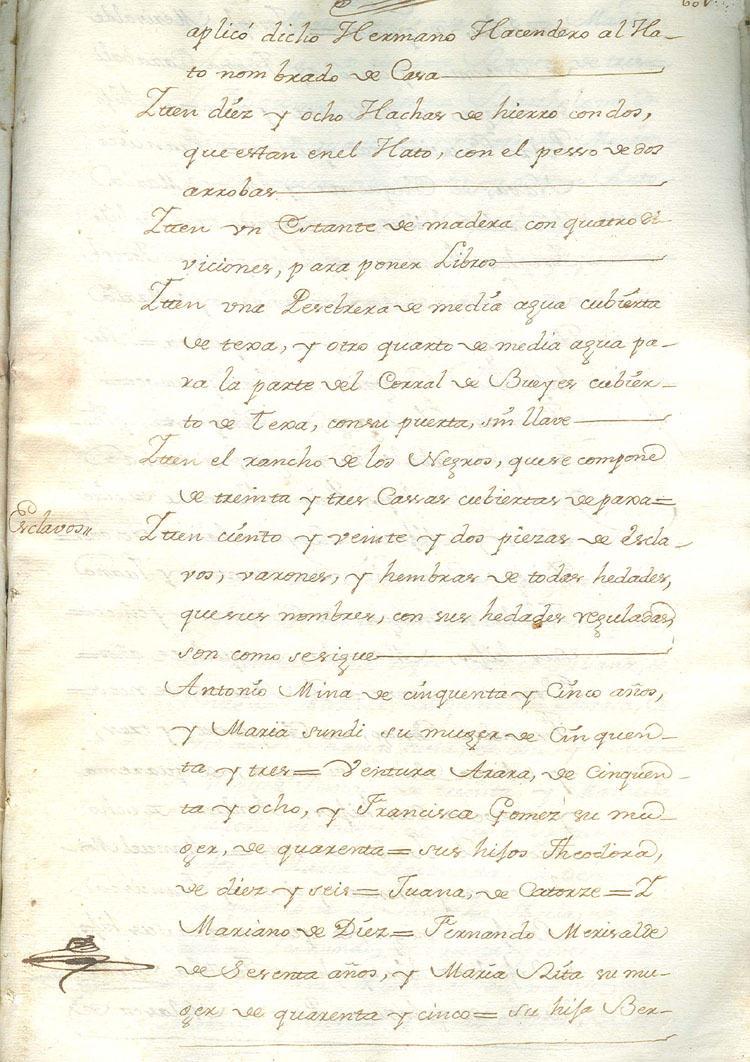 60v.
aplicó dicho Hermano Hacendero al Ha-
to nombrado de Casa
Iten diéz y ocho Hachas de hierro con dos,
que estan en el Hato, con el pesso de dos
arrobas
Iten vn Estante de madera con quatro di-
viciones, para poner Libros
Iten vna Pesebrera de media agua cubierta
de texa, y otro quarto de media agua pa-
ra la parte del Corral de Bueyes cubier-
to de Texa, con su puerta, sin llave
Iten el rancho de los Negros, que se compone
de treinta y tres Cassas cubiertas de paxa=
Esclavos"
Iten ciento y veinte y dos piezas de Escla-
vos, varones, y hembras de todas hedades,
que sus nombres, con sus hedades reguladas,
son como se sigue
Antonio Mina de cinquenta y Cinco años,
y Maria sundi su muger de Cinquen-
ta y tres= Ventura Arara, de Cinquen-
ta y ocho, y Francisca Gomez su mu-
ger, de quarenta= sus hijos Theodora,
de diez y seis= Juana, de Catorze= I
Mariano de Díez= Fernando Merisalde
de Sesenta años, y María Rita su mu-
ger de quarenta y cinco= su hija Ber-